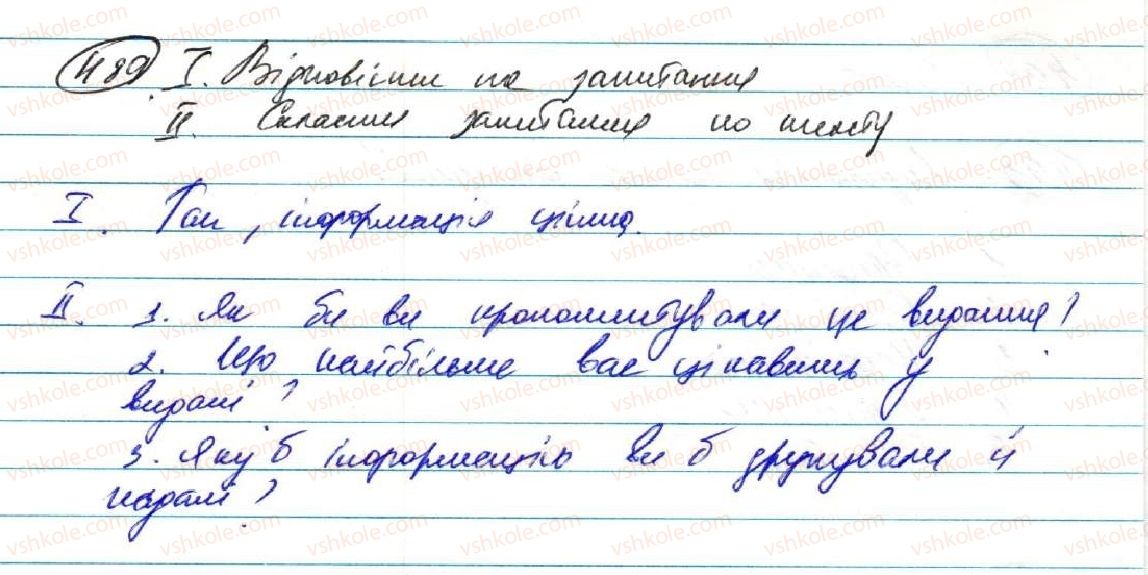 489. I. Відповісти на запитання
II. Скласти запитання по тексту
I. Так, інформація цінна.
II. 1. Як би ви прокоментували це видання?
2. Що найбільше вас цікавить у
видані?
3. Яку б інформацію ви б друкували й
надалі?